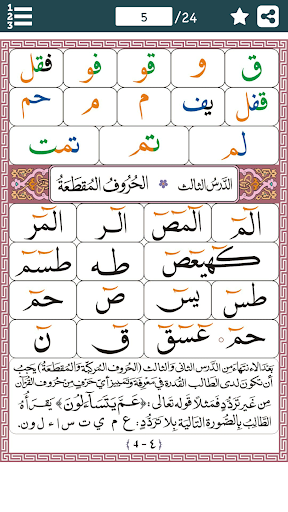 1 2 3
5 /24
ق و قو فو فقل
قفل يف م م حم
لم تم تمت
الدَّرْسُ الثَّالِث الحُرُوفُ المُقَطَّعَةُ
الٓمٓ الٓمٓصٓ الٓر الٓمٓر
كٓهيعٓصٓ طه طسٓمٓ
طسٓ يسٓ صٓ حمٓ
حمٓ عٓسٓقٓ قٓ نٓ
بَعْدَ الانْتِهَاءِ مِنَ الدَّرْسِ الثَّانِي وَالثَّالِثِ (الحُرُوفِ المُرَكَّبَةِ وَالمُقَطَّعَةِ) يَجِبُ
أَنْ تَكُونَ لَدَى الطَّالِبِ القُدْرَةُ فِي مَعْرِفَةِ وَتَمْيِيزِ أَيِّ حَرْفٍ مِنْ حُرُوفِ القُرْآنِ
مِنْ غَيْرِ تَرَدُّدٍ فَمَثَلاً قَوْلُهُ تَعَالَى: ﴿عَمَّ يَتَسَآءَلُونَ﴾ يَقْرَأُهُ
الطَّالِبُ بِالصُّورَةِ التَّالِيَةِ بِلَا تَرَدُّدٍ: ع م ي ت س ا ء ل و ن.
4 - ٤